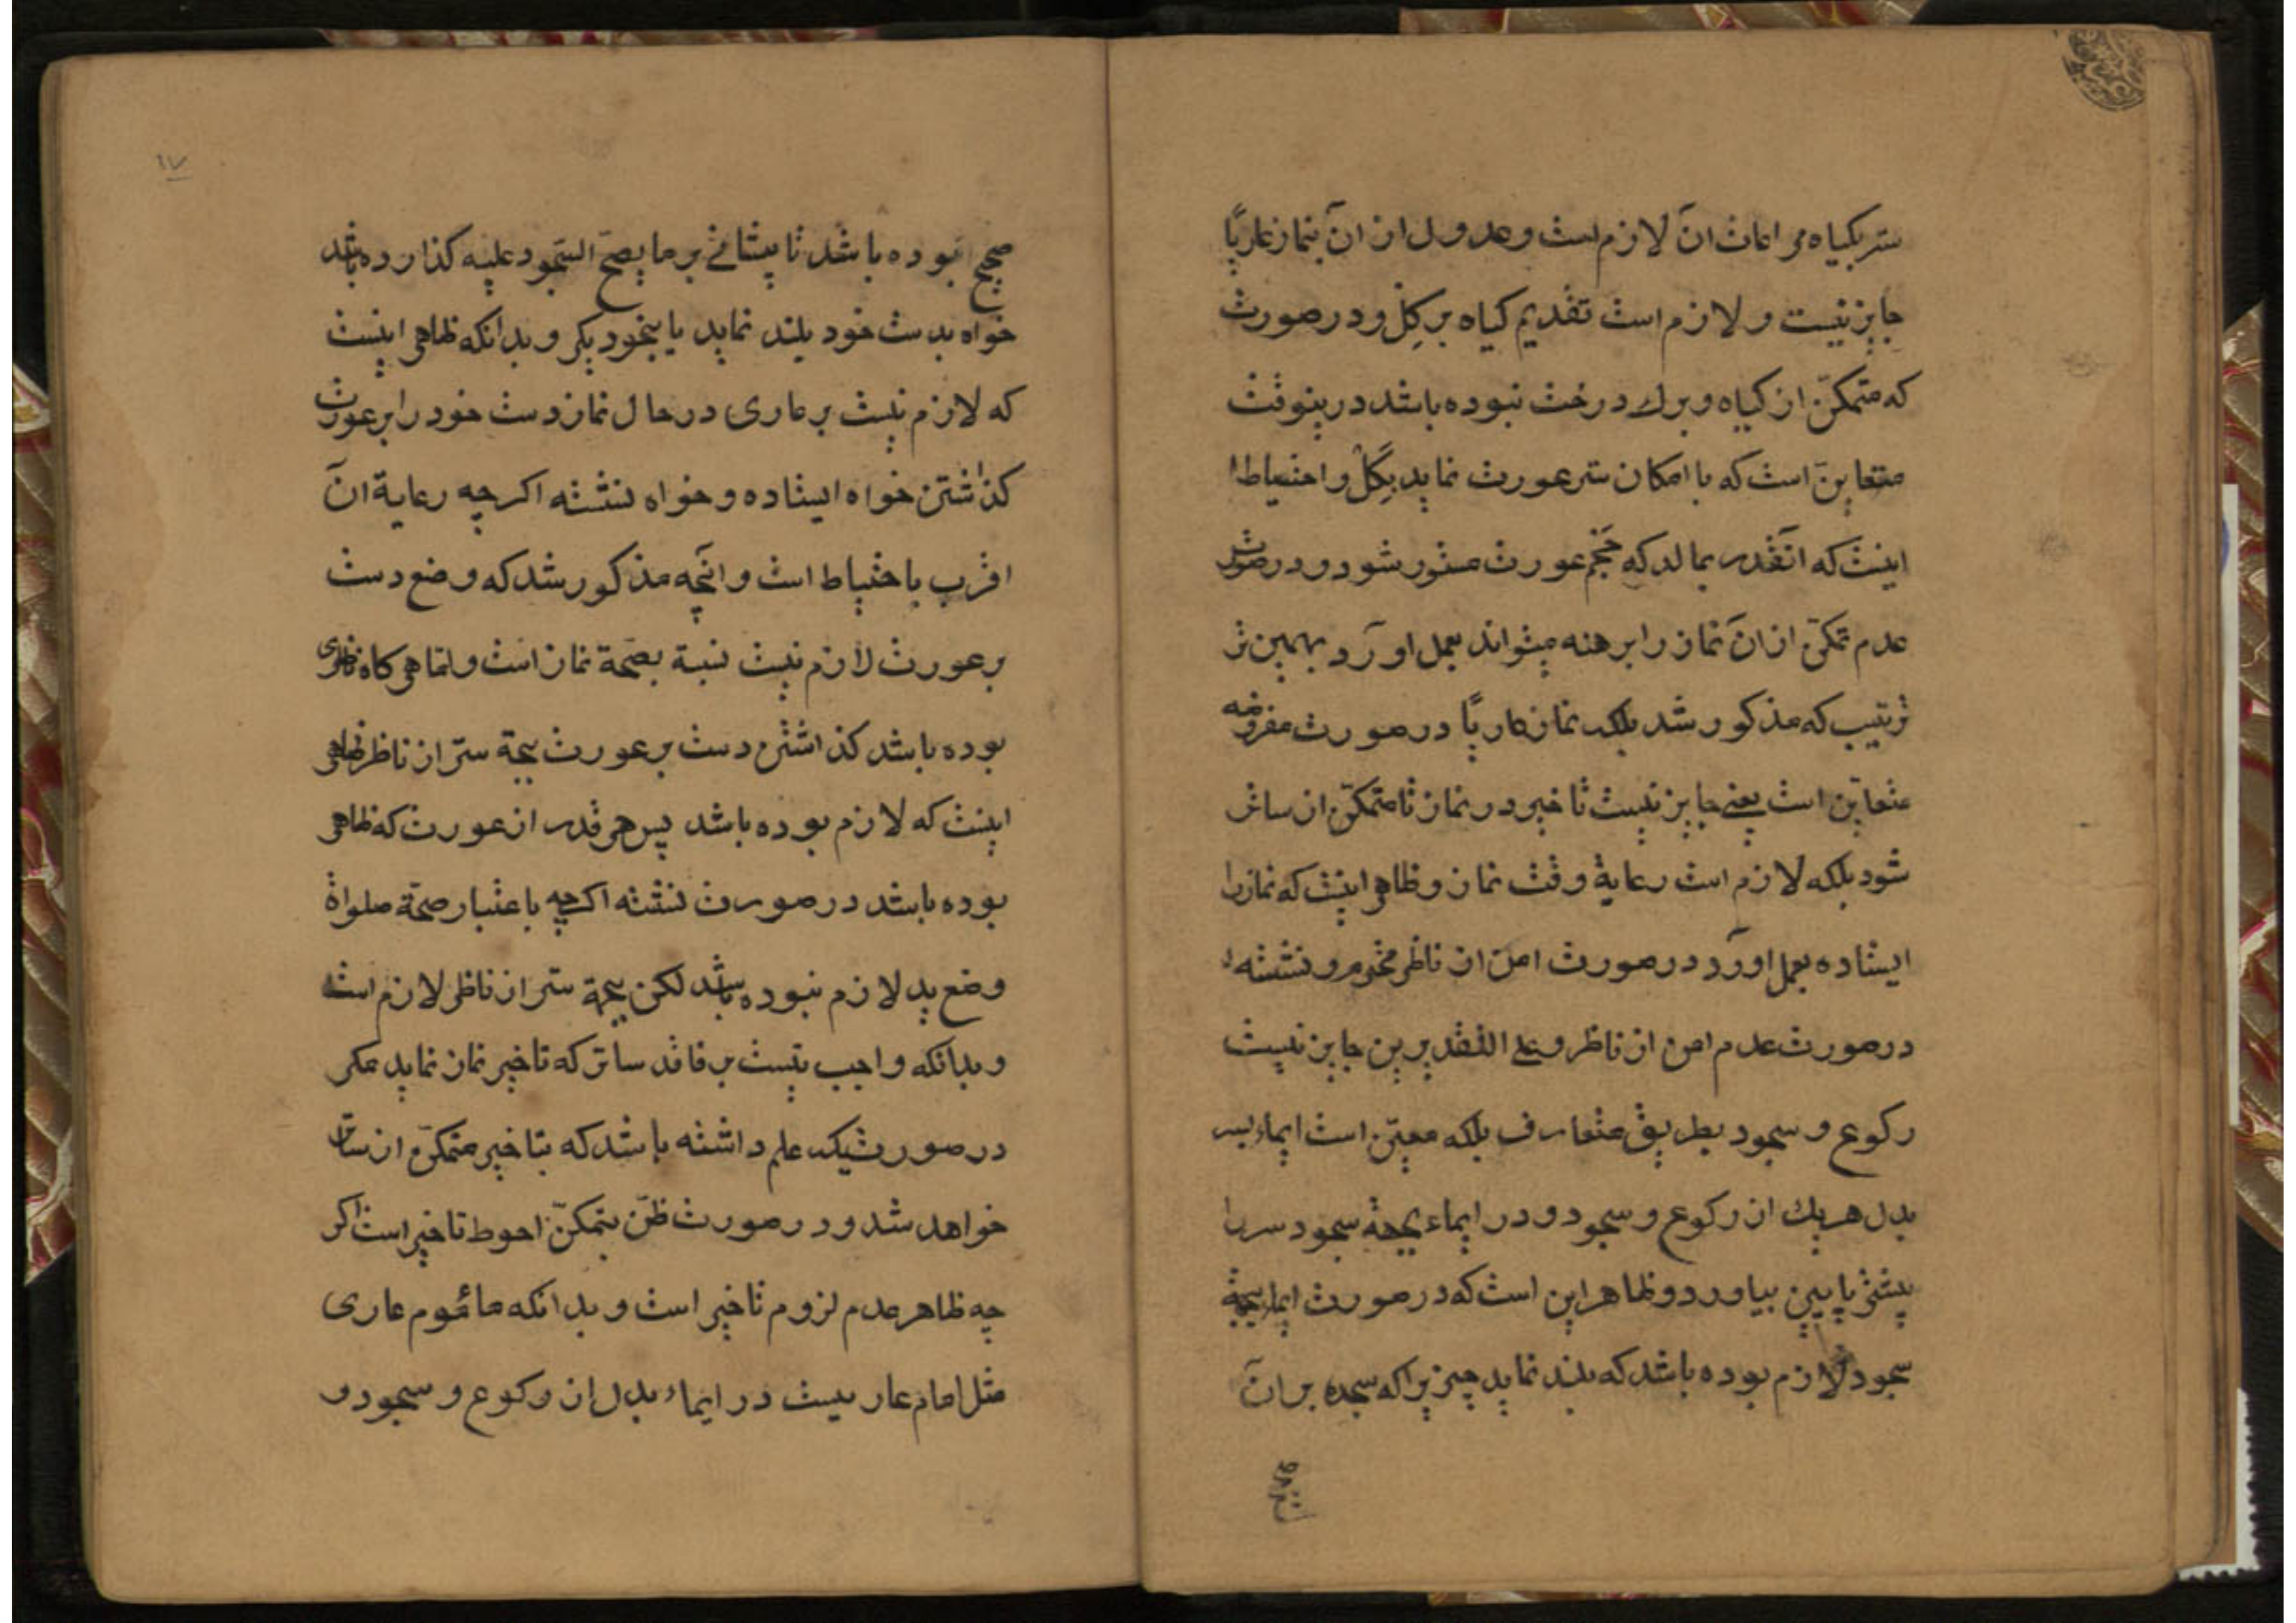 ستر بکیاه مراعات آن لازم است و عدول از ان بنماز عاریًا
جایز نیست و لازم است تقدیم کیاه بر کِل و در صورت
که متمکّن از کیاه و برك درخت نبوده باشد درینوقت
متعایّن است که با امکان ستر عورت نماید بکِلْ و احتیاط ا
اینست که انقدر بمالد که حَجم عورت مستور شود و در صورت
عدم تمکّن از انَ نماز را برهنه میتواند بعمل اورَد بهمین تر
ترتیب که مذکور شد بلکه نماز عاریًا در صورت مفروضه
متعایّن است یعنے جایز نیست تاخیر در نماز تا متمکّن از ساتر
شود بلکه لازم است رعایة وقت نماز و ظاهر اینست که نماز را
ایستاده بعمل اورَد در صورت امن از ناظر محترم و نشسته ا
در صورت عدم امن از ناظر و علے التقدیرین جایز نیست
رکوع و سجود بطریق متعارف بلکه معیّن است ایماء بسر
بدل هریك از رکوع و سجود و در ایماء بجهة سجود سر را
پیشتر پایین بیاورد و ظاهر این است که در صورت ایماء بجهة
سجود لازم بوده باشد که بلند نماید چیزیرا که سجده بر آن
صحیح بوده باشد تا پیشانے بر ما یصحّ السّجود علیه کذارده باشد
خواه بدست خود بلند نماید یا بنحو دیکر و بدانکه ظاهر اینست
که لازم نیست بر عاری در حال نماز دست خود را بر عورت
کذاشتن خواه ایستاده و خواه نشسته اکر چه رعایة آن
اقرب باحتیاط است و انچَه مذکور شد که وضع دست
بر عورت لازم نیست نسبة بصحّة نماز است و امّا هر کاه ناظری
بوده باشد کذاشتن دست بر عورت بجهة ستر از ناظر ظاهر
اینست که لازم بوده باشد پس هر قدر از عورت که ظاهر
بوده باشد در صورت نشسته اکرچه باعتبار صحّة صلواة
وضع ید لازم نبوده باشد لکن بجهة ستر از ناظر لازم است
و بدانکه واجب نیست بر فاقد ساتر که تاخیر نماز نماید مکر
در صورتیکه علم داشته باشد که بتاخیر متمکّن از ساتر
خواهد شد و در صورت ظنّ بتمکنّ احوط تاخیر است اکر
چه ظاهر عدم لزوم تاخیر است و بدانکه مامُوم عاری
مثل امام عاریست در ایماء بدل از رکوع و سجود و